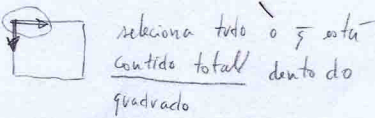 seleciona tudo o q̄ está
contido total dento do
quadrado